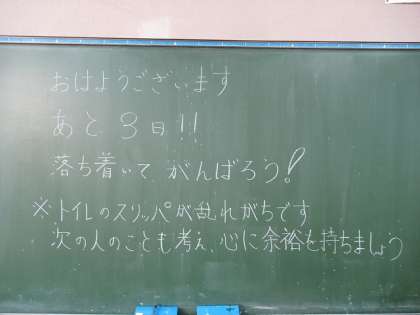 おはようございます
あと 3日!!
落ち着いて がんばろう!
※トイレのスリッパが乱れがちです
次の人のことも考え、心に余裕を持ちましょう